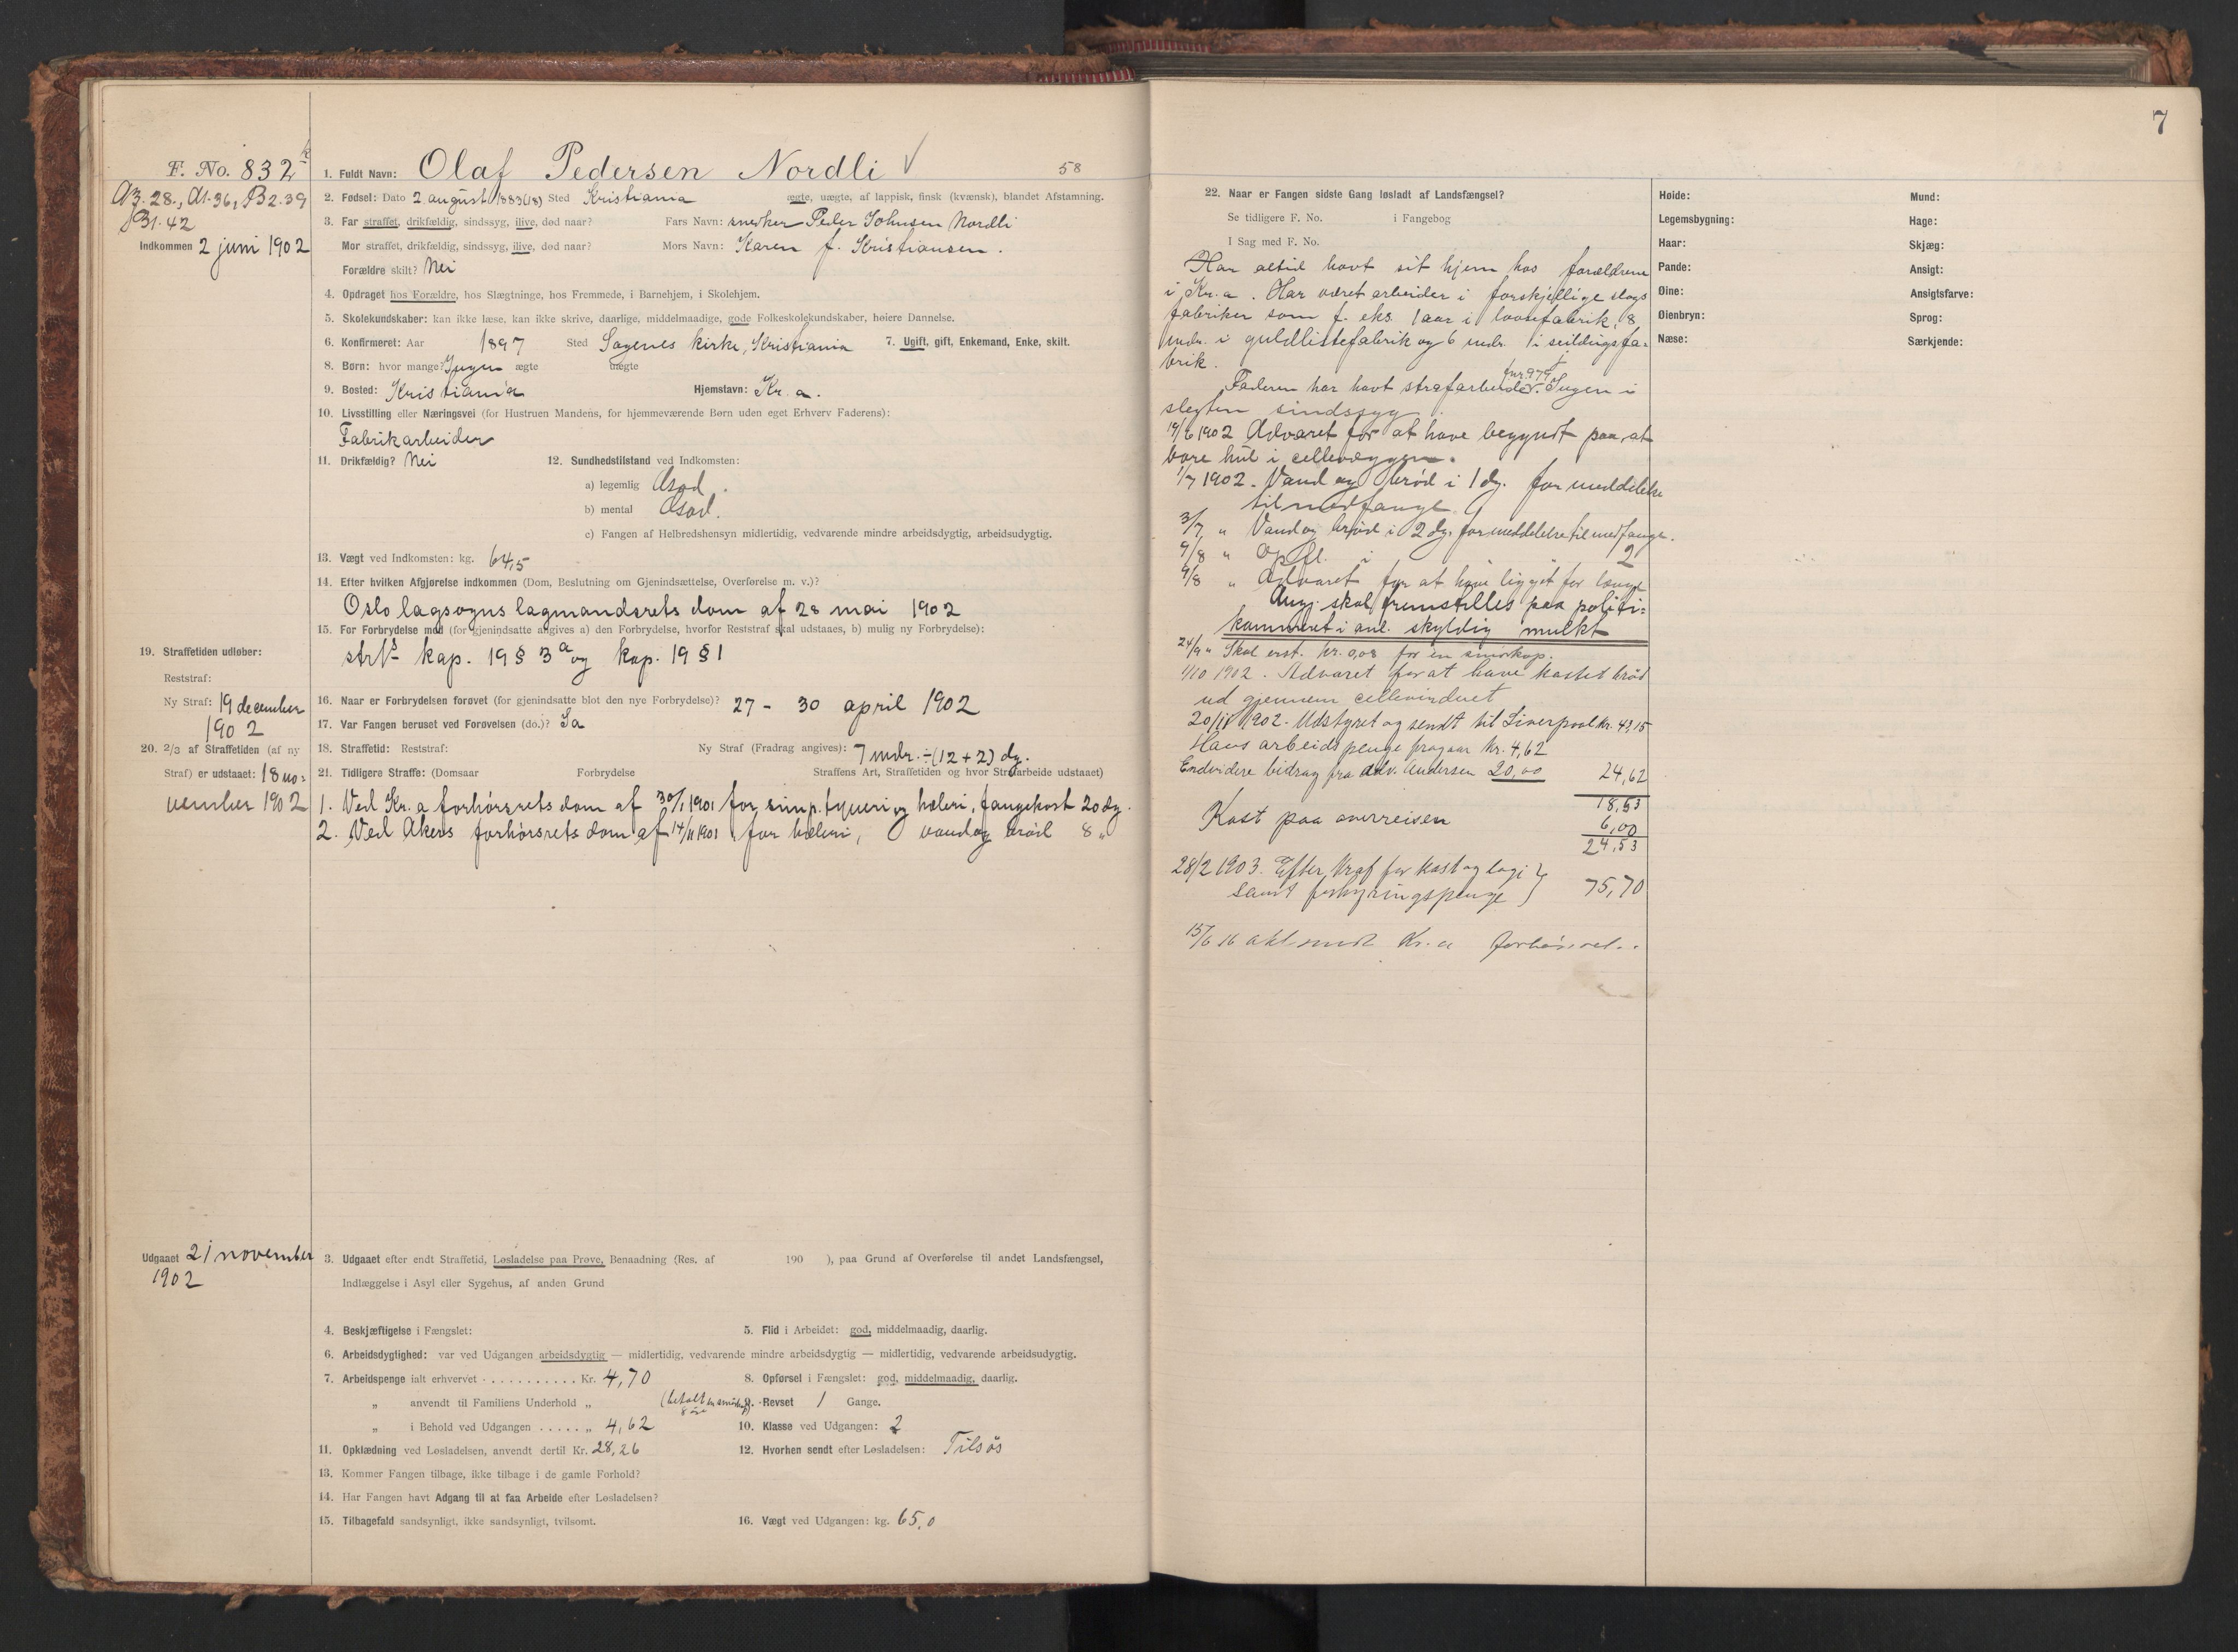 7
F. No. 832
1. Fuldt Navn: Olaf Pedersen Nordli √ 58
A3.28., A1.36, B2.39
B1.42
Indkommen 2 juni 1902
2. Fødsel: Dato 2 august 1883 (18) Sted Kristiania ægte, uægte, af lappisk, finsk (kvænsk), blandet Afstamning.
3. Far straffet, drikfældig, sindssyg, ilive, død naar? Fars Navn: snedker Peder Johnsen Nordli
Mor straffet, drikfældig, sindssyg, ilive, død naar? Mors Navn: Karen f. Kristiansen.
Forældre skilt? Nei
4. Opdraget hos Forældre, hos Slægtninge, hos Fremmede, i Barnehjem, i Skolehjem.
5. Skolekundskaber: kan ikke læse, kan ikke skrive, daarlige, middelmaadige, gode Folkeskolekundskaber, høiere Dannelse.
6. Konfirmeret: Aar 1897 Sted Sagenes kirke, Kristiania 7. Ugift, gift, Enkemand, Enke, skilt.
8. Børn: hvor mange? Ingen ægte uægte
9. Bosted: Kristiania Hjemstavn: Kr.a.
10. Livsstilling eller Næringsvei (for Hustruen Mandens, for hjemmeværende Børn uden eget Erhverv Faderens):
Fabrikarbeider
11. Drikfældig? Nei 12. Sundhedstilstand ved Indkomsten:
a) legemlig God.
b) mental God.
c) Fangen af Helbredshensyn midlertidig, vedvarende mindre arbeidsdygtig, arbeidsudygtig.
13. Vægt ved Indkomsten: kg. 64,5
14. Efter hvilken Afgjørelse indkommen (Dom, Beslutning om Gjenindsættelse, Overførelse m. v.)?
Oslo lagsogns lagmandsrets dom af 28 mai 1902
15. For Forbrydelse mod (for gjenindsatte angives a) den Forbrydelse, hvorfor Reststraf skal udstaaes, b) mulig ny Forbrydelse):
kap. 19 § 3 a og kap. 19 § 1
19. Straffetiden udløber:
Reststraf:
Ny Straf: 19 december
1902
16. Naar er Forbrydelsen forøvet (for gjenindsatte blot den nye Forbrydelse)? 27 - 30 april 1902
17. Var Fangen beruset ved Forøvelsen (do.)? Ja
20. 2/3 af Straffetiden (af ny
Straf) er udstaaet: 18 no=
vember 1902
18. Straffetid: Reststraf: Ny Straf (Fradrag angives): 7 mdr. ÷ (12 + 2) dg.
21. Tidligere Straffe: (Domsaar Forbrydelse Straffens Art, Straffetiden og hvor Strafarbeide udstaaet)
1. Ved Kr.a forhørsrets dom af 30/1 1901 for simp. tyveri og hæleri, fangekost 20 dg.
2. Ved Akers forhørsrets dom af 14/11 1901 for hæleri, vand og brød 8 "
Udgaaet 21 november
1902
3. Udgaaet efter endt Straffetid, Løsladelse paa Prøve, Benaadning (Res. af 190 ), paa Grund af Overførelse til andet Landsfængsel,
Indlæggelse i Asyl eller Sygehus, af anden Grund
4. Beskjæftigelse i Fængslet: 5. Flid i Arbeidet: god, middelmaadig, daarlig.
6. Arbeidsdygtighed: var ved Udgangen arbeidsdygtig — midlertidig, vedvarende mindre arbeidsdygtig — midlertidig, vedvarende arbeidsudygtig.
7. Arbeidspenge ialt erhvervet . . . . . . . . . . . Kr. 4,70 8. Opførsel i Fængslet: god, middelmaadig, daarlig.
" anvendt til Familiens Underhold " (betalt en smørkop 8 øre) 9. Revset 1 Gange.
" i Behold ved Udgangen . . . . . " 4,62 10. Klasse ved Udgangen: 2
11. Opklædning ved Løsladelsen, anvendt dertil Kr. 28,26 12. Hvorhen sendt efter Løsladelsen: Tilsøs
13. Kommer Fangen tilbage, ikke tilbage i de gamle Forhold?
14. Har Fangen havt Adgang til at faa Arbeide efter Løsladelsen?
15. Tilbagefald sandsynligt, ikke sandsynligt, tvilsomt. 16. Vægt ved Udgangen: kg. 65,0
22. Naar er Fangen sidste Gang løsladt af Landsfængsel?
Se tidligere F. No. i Fangebog
I Sag med F. No.
Har altid havt sit hjem hos forældrene
i Kr.a. Har været arbeider i forskjellige slags
fabriker som f. eks. 1 aar i laasefabrik, 8
mdr. i guldlistefabrik og 6 mdr. i seildugsfa=
brik.
fnr. 979
Faderen har havt strafarbeide. Ingen i
slegten sindssyg.
19/6 1902 Advaret for at have begyndt paa at
bore hul i cellevæggen.
1/7 1902. Vand og brød i 1 dg. for meddelelse
til medfange.
3/7 " Vand og brød i 2 dg. for meddelelse til medfange.
9/8 " Opfl. i 2
9/8 " Advaret for at have ligget for længe
Angj. skal fremstilles paa politi=
kammeret i anl. skyldig mulkt
24/9 " Skal erst. kr. 0,08 for en smørkop.
1/10 1902. Advaret for at have kastet brød
ud gjennem cellevinduet
20/11 1902. Udstyret og sendt til Liverpool kr. 43,15
Hans arbeidspenge fragaar kr. 4,62
Endvidere bidrag fra adv. Andersen 20,00 24,62
18,53
Kost paa overreisen 6,00
24,53
28/2 1903. Efter krav for kost og logi }
samt forhyringspenge } 75,70
15/6 16 Kr.a forhørsret.
Høide:
Legemsbygning:
Haar:
Pande:
Øine:
Øienbryn:
Næse:
Mund:
Hage:
Skjæg:
Ansigt:
Ansigtsfarve:
Sprog:
Særkjende: